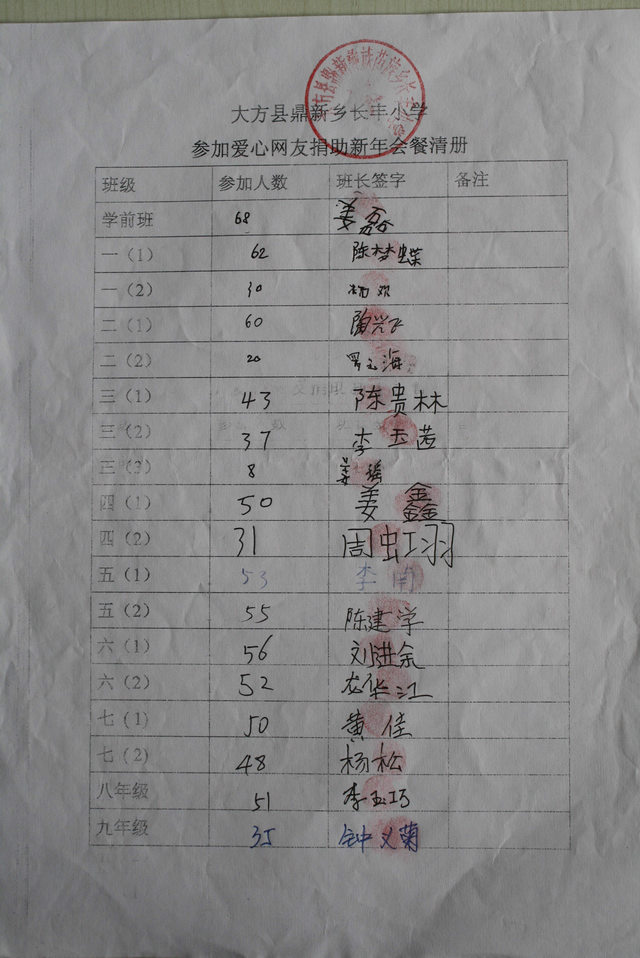 大方县鼎新乡长丰小学
参加爱心网友捐助新年会餐清册
班级 参加人数 班长签字 备注
学前班 68 姜磊
一（1） 62 陈梦蝶
一（2） 30 杨欢
二（1） 60 陶兴飞
二（2） 20 罗元海
三（1） 43 陈贵林
三（2） 37 李玉茜
三（3） 8 姜瑶
四（1） 50 姜鑫
四（2） 31 周虹羽
五（1） 53 李南
五（2） 55 陈建学
六（1） 56 刘进余
六（2） 52 龙华江
七（1） 50 黄佳
七（2） 48 杨松
八年级 51 李玉巧
九年级 35 钟义菊